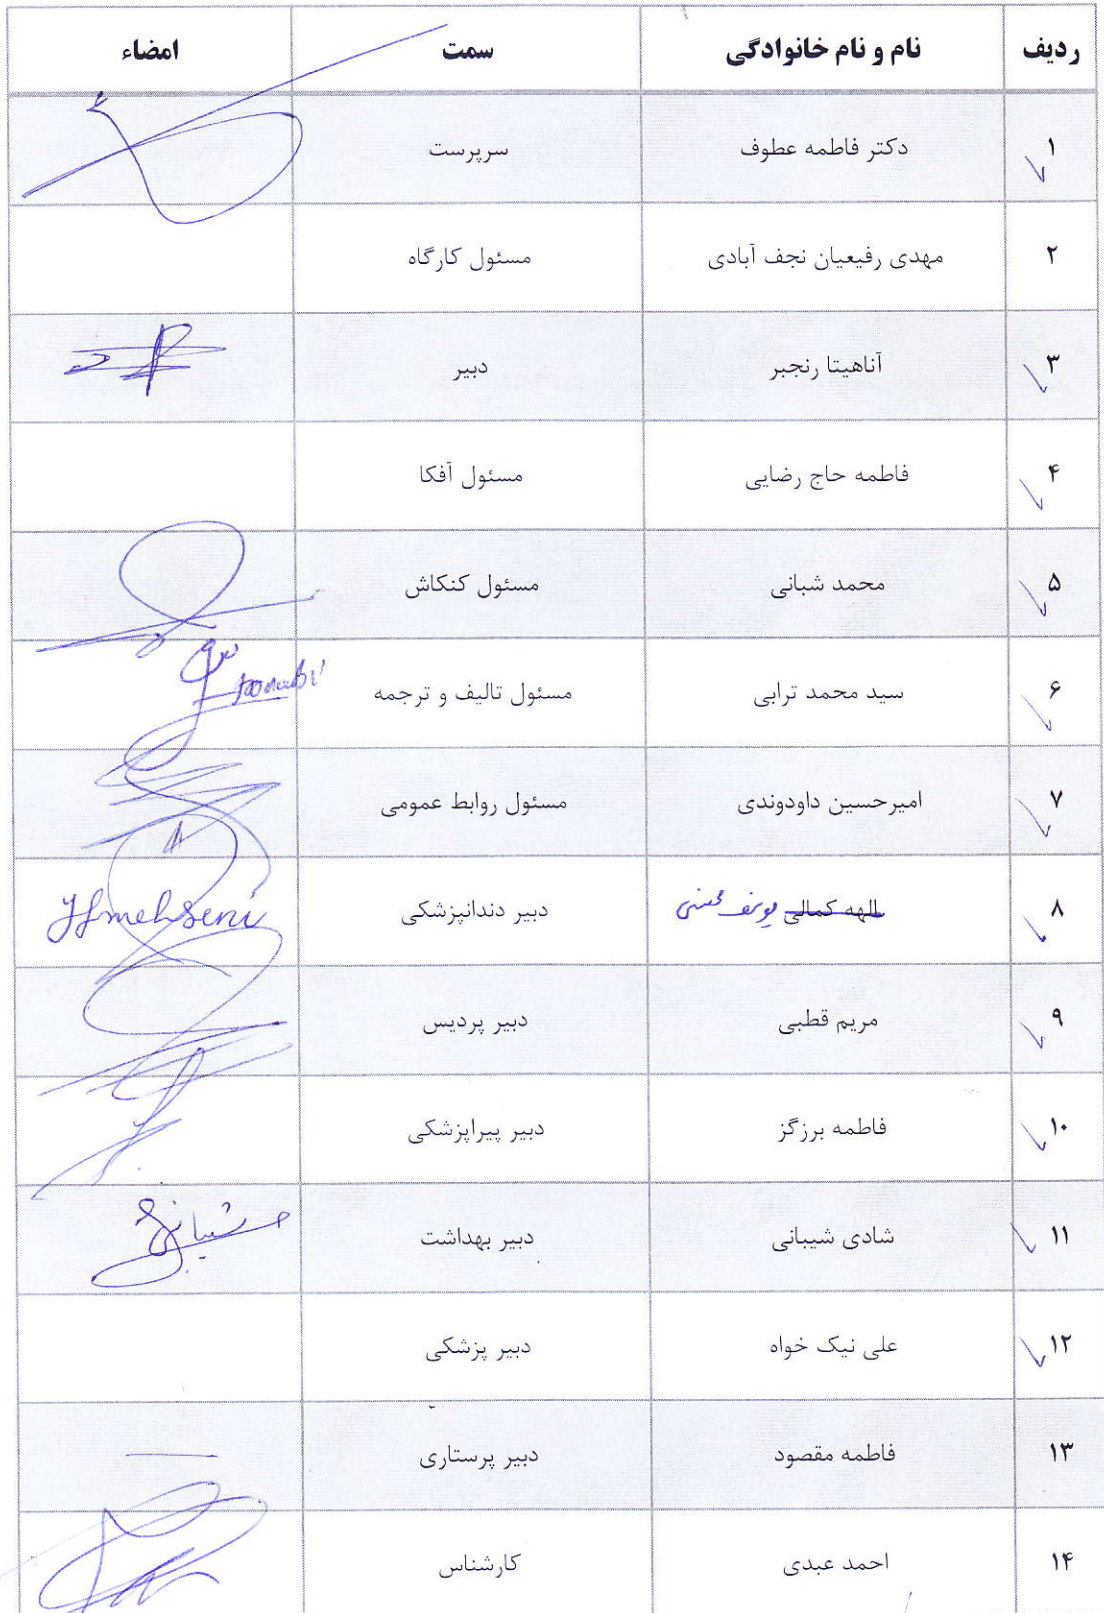 ردیف نام و نام خانوادگی سمت امضاء
۱ دکتر فاطمه عطوف سرپرست
۲ مهدی رفیعیان نجف آبادی مسئول کارگاه
۳ آناهیتا رنجبر دبیر
۴ فاطمه حاج رضایی مسئول آفکا
۵ محمد شبانی مسئول کنکاش
۶ سید محمد ترابی مسئول تالیف و ترجمه
۷ امیرحسین داودوندی مسئول روابط عمومی
۸ الهه کمالی یوسف محسنی دبیر دندانپزشکی mohseni
۹ مریم قطبی دبیر پردیس
۱۰ فاطمه برزگز دبیر پیراپزشکی
۱۱ شادی شیبانی دبیر بهداشت شیبانی
۱۲ علی نیک خواه دبیر پزشکی
۱۳ فاطمه مقصود دبیر پرستاری
۱۴ احمد عبدی کارشناس